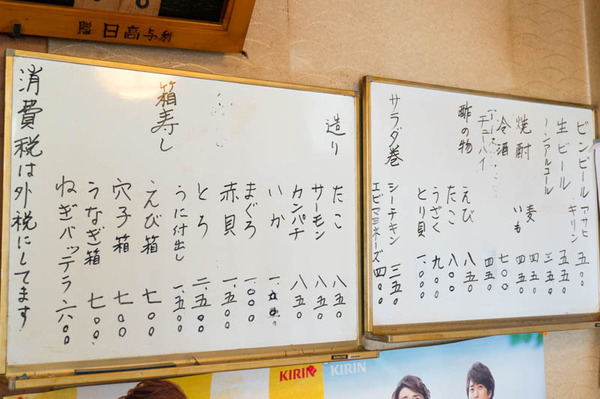 贈 日高与
ビンビール アサヒ
キリン
生ビール 五五〇
ノンアルコール 三五〇
焼酎 麦 四五〇
いも 四五〇
冷酒 七〇〇
チューハイ 四五〇
酢の物 えび 八〇〇
たこ 八〇〇
うざく 九〇〇
とり貝 一.〇〇〇
サラダ巻 シーチキン 三五〇
エビマヨネーズ 四〇〇
造り たこ 八五〇
サーモン 八五〇
カンパチ 八五〇
いか 一.〇〇〇
まぐろ 一.〇〇〇
赤貝 一.五〇〇
とろ 二.五〇〇
うに付出し 一.五〇〇
箱寿し えび箱 七〇〇
穴子箱 七〇〇
うなぎ箱 七〇〇
ねぎバッテラ 六〇〇
消費税は外税にしてます
KIRIN
KIRIN